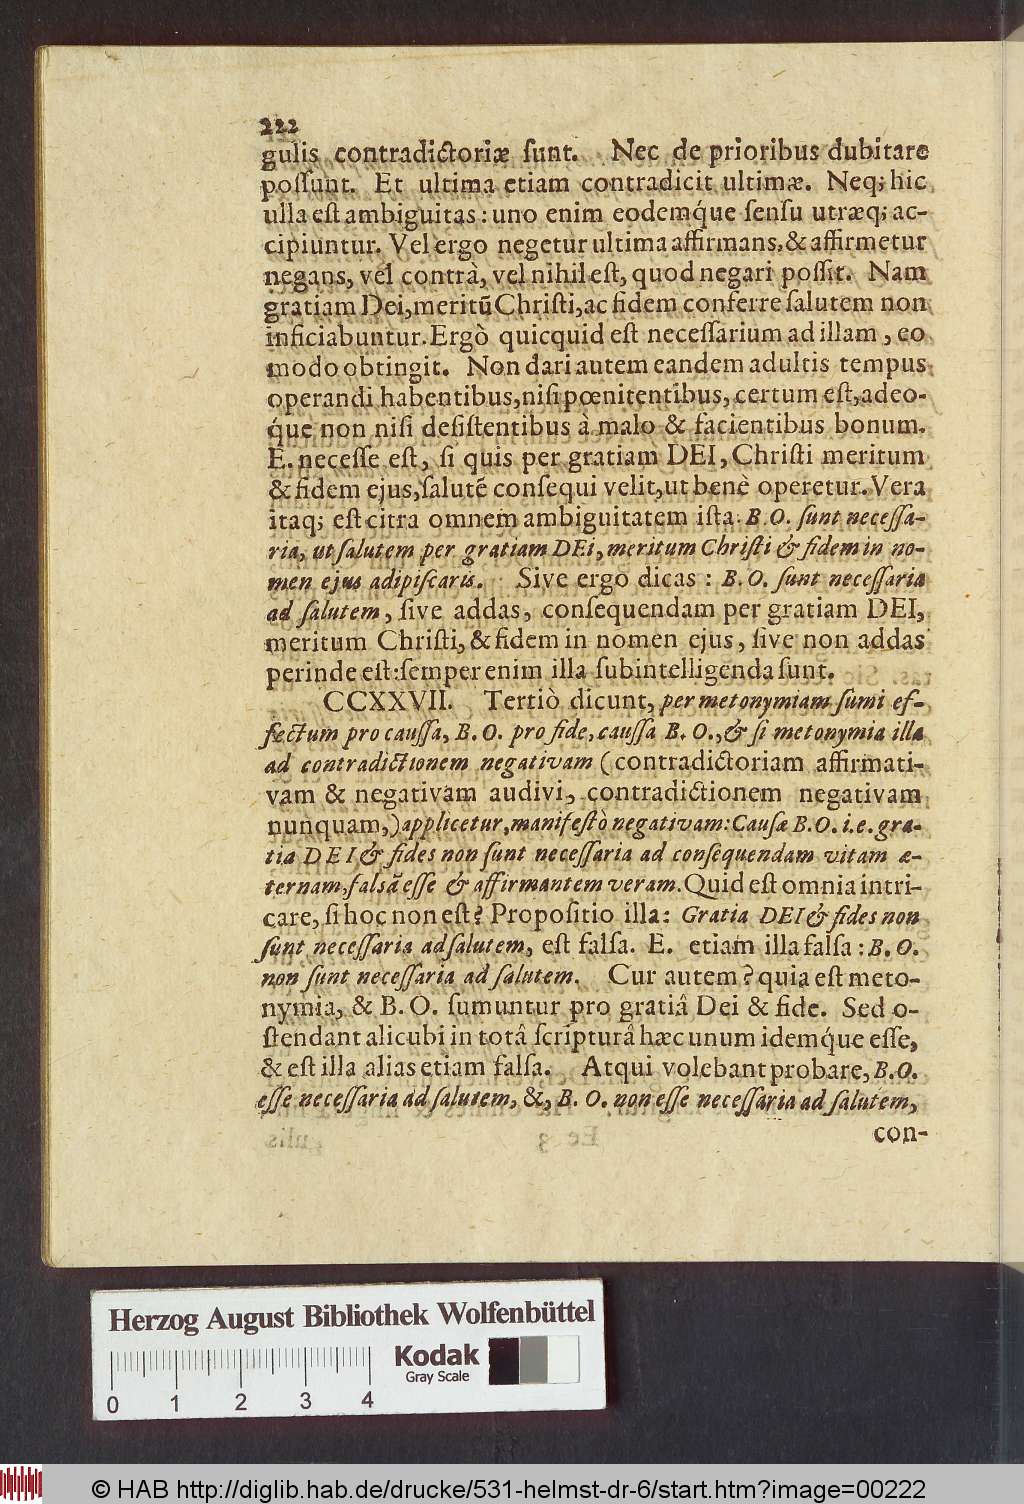 222
gulis contradictoriæ ſunt. Nec de prioribus dubitare
poſſunt. Et ultima etiam contradicit ultimæ. Neq; hic
ulla eſt ambiguitas : uno enim eodemq́ue ſenſu utræq; ac-
cipiuntur. Vel ergo negetur ultima affirmans, & affirmetur
negans, vel contrà, vel nihil eſt, quod negari poſſit. Nam
gratiam Dei, meritũ Chriſti, ac fidem conferre ſalutem non
inficiabuntur. Ergò quicquid eſt neceſſarium ad illam, eo
modo obtingit. Non dari autem eandem adultis tempus
operandi habentibus, niſi pœnitentibus, certum eſt, adeo-
q́ue non niſi deſiſtentibus à malo & facientibus bonum.
E. neceſſe eſt, ſi quis per gratiam DEI, Chriſti meritum
& fidem ejus, ſalutẽ conſequi velit, ut benè operetur. Vera
itaq; eſt citra omnem ambiguitatem iſta: B. O. ſunt neceſſa-
ria, ut ſalutem per gratiam DEi, meritum Chriſti & fidem in no-
men ejus adipiſcaris. Sive ergo dicas : B. O. ſunt neceſſaria
ad ſalutem, ſive addas, conſequendam per gratiam DEI,
meritum Chriſti, & fidem in nomen ejus, ſive non addas
perinde eſt: ſemper enim illa ſubintelligenda ſunt.
CCXXVII. Tertiò dicunt, per metonymiam ſumi ef-
fectum pro cauſſa, B. O. pro fide, cauſſa B. O., & ſi metonymia illa
ad contradictionem negativam (contradictoriam affirmati-
vam & negativam audivi, contradictionem negativam
nunquam,) applicetur, manifeſtò negativam: Cauſæ B.O. i.e. gra-
tia DEI & fides non ſunt neceſſaria ad conſequendam vitam æ-
ternam, falsã eſſe & affirmantem veram. Quid eſt omnia intri-
care, ſi hoc non eſt? Propoſitio illa: Gratia DEI & fides non
ſunt neceſſaria ad ſalutem, eſt falſa. E. etiam illa falſa : B. O.
non ſunt neceſſaria ad ſalutem. Cur autem? quia eſt meto-
nymia, & B. O. ſumuntur pro gratiâ Dei & fide. Sed o-
ſtendant alicubi in totâ ſcripturâ hæc unum idemq́ue eſſe,
& eſt illa alias etiam falſa. Atqui volebant probare, B. O.
eſſe neceſſaria ad ſalutem, &, B. O. non eſſe neceſſaria ad ſalutem,
con-
Herzog August Bibliothek Wolfenbüttel
Kodak
Gray Scale
0 1 2 3 4
© HAB http://diglib.hab.de/drucke/531-helmst-dr-6/start.htm?image=00222